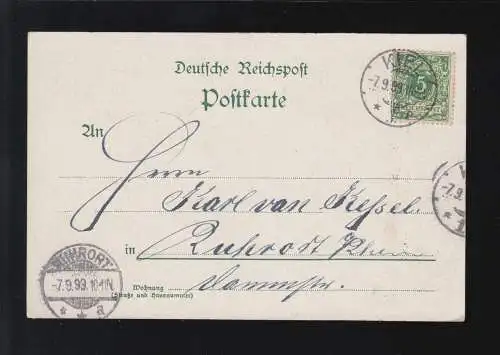 Deutsche Reichspost
Postkarte
-7.9.99.
5
An
Herrn
Karl van Kessel
-7.9.
in
Ruhrort Rhein
Dammstr.
RUHRORT
-7.9.99. 10-11N.
* * a
Wohnung
(Straße und Hausnummer)